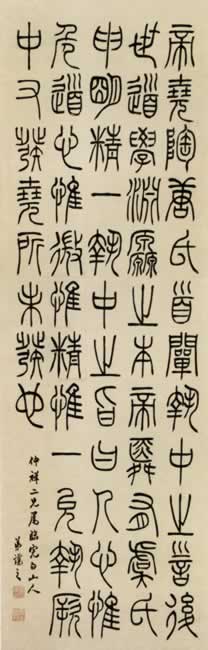 帝堯陶唐氏首闡執中之言後
世道學淵厵之本帝舜有虞氏
申明精一執中之旨曰人心惟
危道心惟微惟精惟一允執厥
中又發堯所未發也
仲祥二兄屬臨完白山人
弟讓之